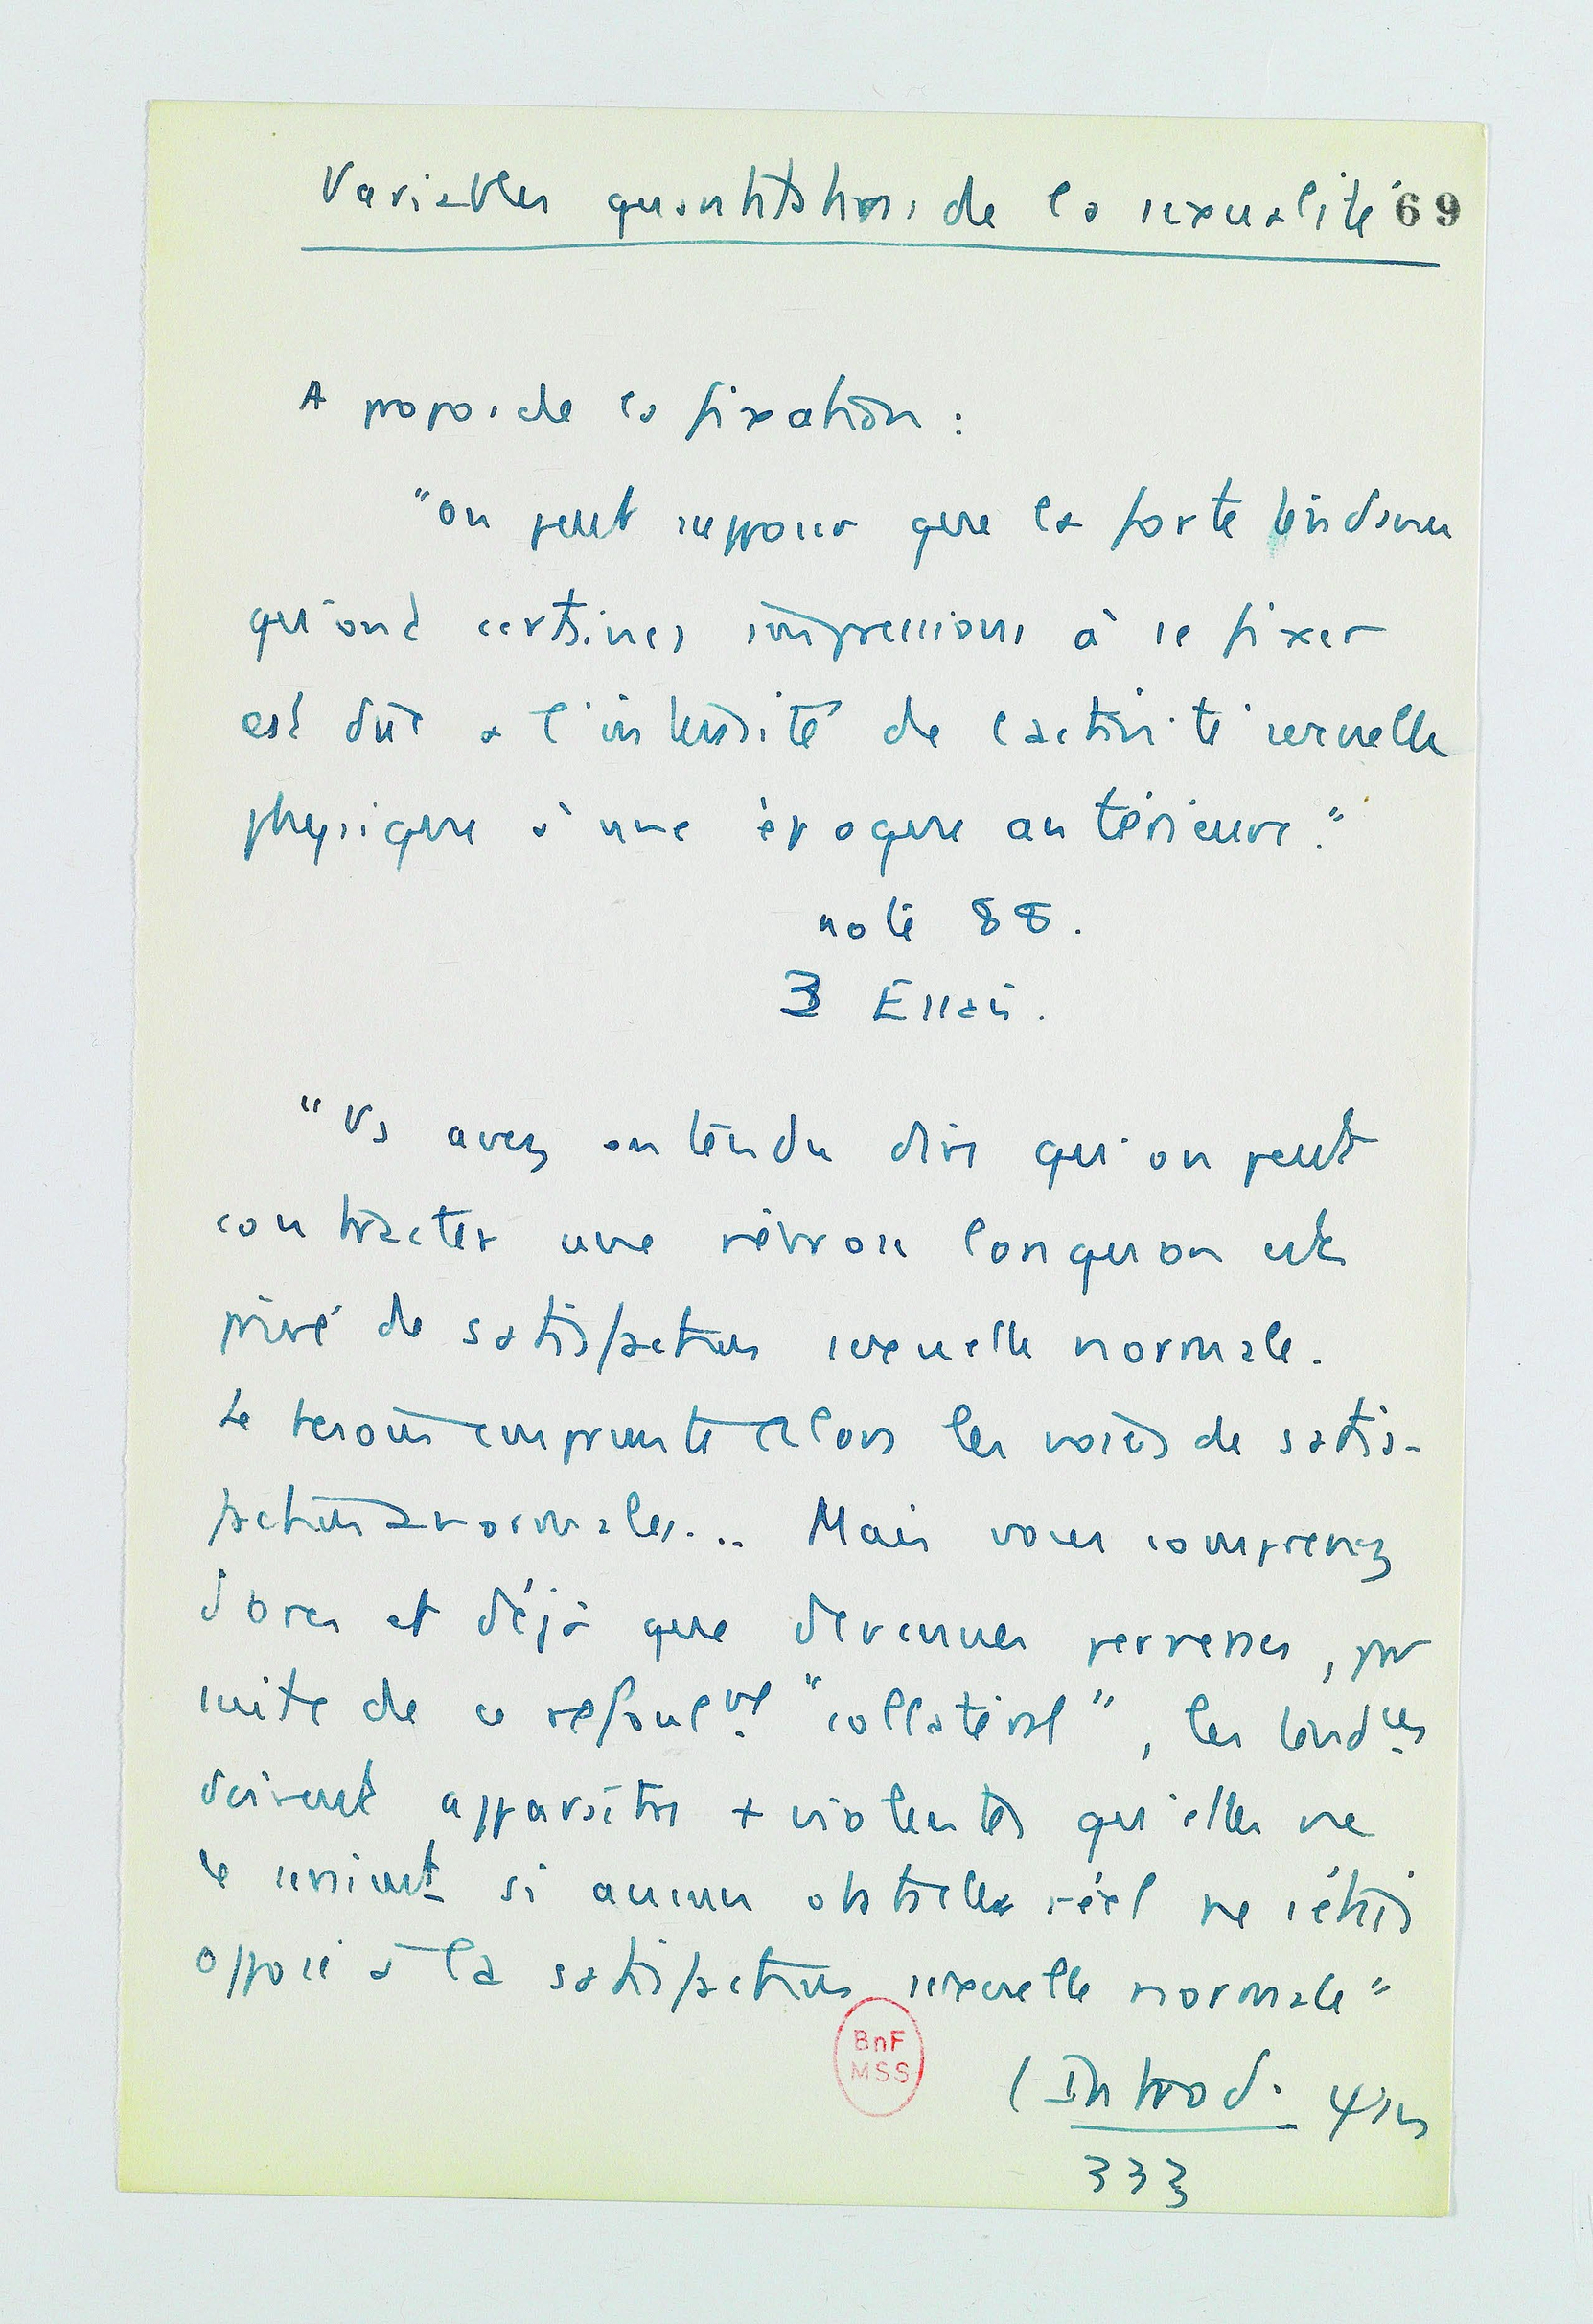 Variables quantitatives de la sexualité 69
A propos de la fixation :
"on peut supposer que la forte tendance
qu'ont certaines impressions à se fixer
est due à l'intensité de l'activité sexuelle
physique à une époque antérieure."
note 88.
3 Essais.
"Vs avez entendu dire qu'on peut
contracter une névrose lorsqu'on est
privé de satisfaction sexuelle normale.
Le besoin emprunte alors les voies de satis-
faction anormales... Mais vous comprenez
d'ores et déjà que devenues perverses, par
suite de ce refoulemt "collatéral", les tendces
doivent apparaître + violentes qu'elles ne
le seraient si aucun obstacle réel ne s'était
opposé à la satisfaction sexuelle normale"
(Introd. ψan
333
BnF
MSS